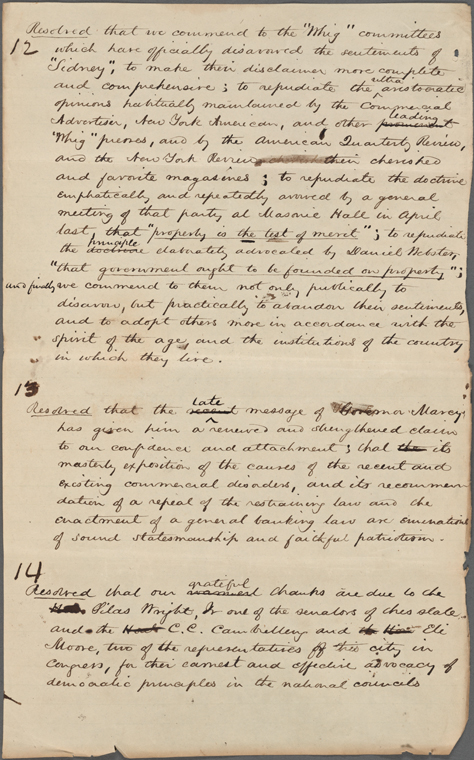 12
Resolved that we commend to the "Whig" committees
which have officially disavowed the sentiments of
"Sidney", to make their disclaimer more complete
and comprehensive; to repudiate the ultra aristocratic
opinions habitually maintained by the Commercial
Advertiser, New York American, and other leading
"Whig" presses, and by the American Quarterly Review,
and the New York Review their cherished
and favorite magasines; to repudiate the doctrine
emphatically and repeatedly avowed by a general
meeting of that party at Masonic Hall in April
last, that "property is the test of merit"; to repudiate
the principle elaborately advocated by Daniel Webster,
"that government ought to be founded on property";
and finally we commend to them not only publically to
disavow, but practically to abandon their sentiments,
and to adopt others more in accordance with the
spirit of the age, and the institutions of the country
in which they live.
13
Resolved that the late message of Governor Marcy
has given him a renewed and strengthened claim
to our confidence and attachment; that its
masterly exposition of the causes of the recent and
existing commercial disorders, and its recommen
dation of a repeal of the restraining law and the
enactment of a general banking law are eminations
of sound statesmanship and faithful patriotism.
14
Resolved that our grateful thanks are due to
the Silas Wright, Jr one of the senators of this state
and the C.C. Cambrelleng and Eli
Moore, two of the representatives of this city in
Congress, for their earnest and effective advocacy of
democratic principles in the national councils